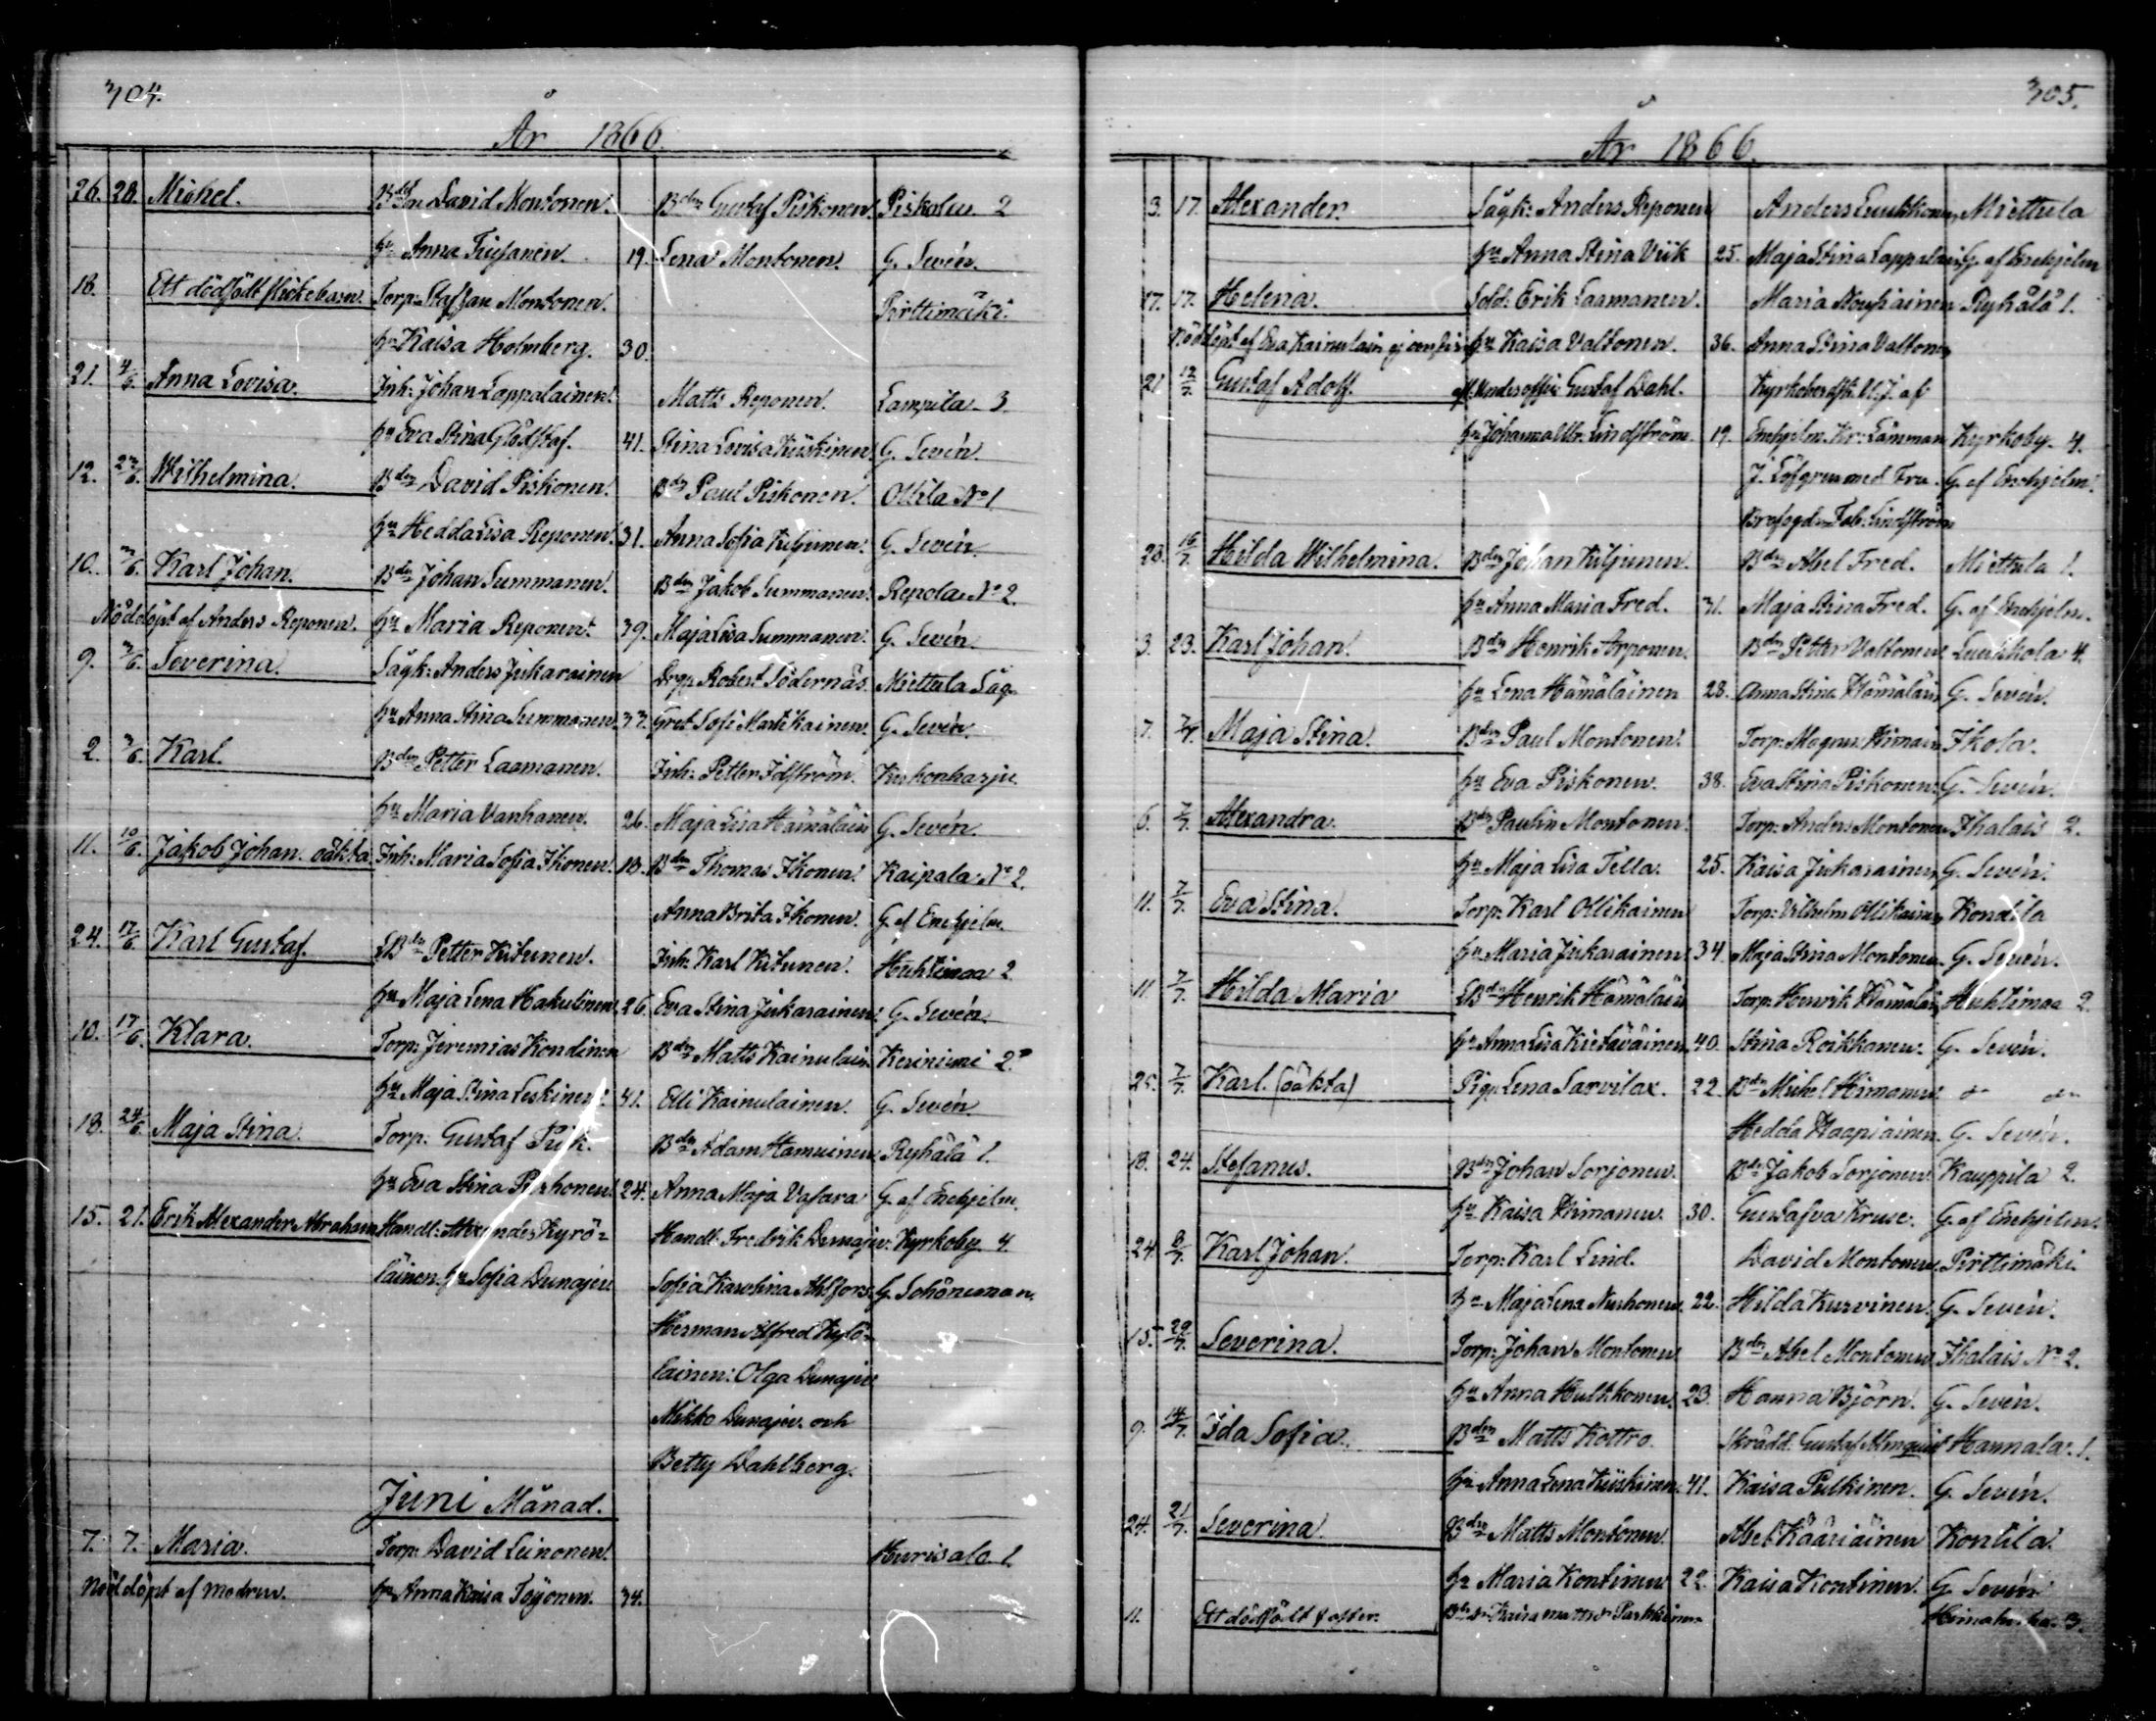 304.
År 1866.
26. 28. Michel. Bd son David Montonen. Bdn Gustaf Piskonen. Piskola 2
hu Anna Kiljanen. 19. Lena Montonen. G. Sevén.
18. Ett dödfödt flickebarn. Torp: Staffan Montonen. Pirttimäki.
hu Kaisa Holmberg. 30.
21. 4/6. Anna Lovisa. Inh: Johan Lappalainen. Matts Reponen. Lampila 3.
hu Eva Stina Glödstaf. 41. Stina Lovisa Kiiskinen. G. Sevén.
12. 23/6. Wilhelmina. Bdn David Piskonen. Bdn Paul Piskonen. Ollila No 1
hu Hedda Lisa Reponen. 31. Anna Sofia Kiljunen. G. Sevén.
10. 3/6. Karl Johan. Bdn Johan Summanen. Bdn Jakob Summanen. Repola No 2.
Nöddöpt af Anders Reponen. hu Maria Reponen. 39. Maja Lisa Summanen. G. Sevén.
9. 3/6. Severina. Sågk: Anders Jukarainen Drgn: Robert Södernäs. Miettula Såg.
hu Anna Stina Summanen. 33. Gret. Sofi Martikainen. G. Sevén.
2. 3/6. Karl. Bdn Petter Laamanen. Inh: Petter Idström. Kukonharju.
hu Maria Vanhanen. 26. Maja Lisa Hämäläin G. Sevén.
11. 10/6. Jakob Johan. oäkta Inh: Maria Sofia Ikonen. 18. Bdn Thomas Ikonen. Kaipala No 2.
Anna Brita Ikonen. G. af Enehjelm.
24. 17/6. Karl Gustaf. LBdn Petter Kitunen. Inh: Karl Kitunen. Huhtimaa 2
hu Maja Lena Hakulinen. 26. Eva Stina Jukarainen. G. Sevén.
10. 17/6. Klara. Torp: Jeremias Kondinen Bdn Matts Kainulain. Keriniemi 2.
hu Maja Stina Leskinen. 41. Elli Kainulainen. G. Sevén.
18. 24/6. Maja Stina. Torp: Gustaf Piik. Bdn Adam Hamuinen. Ryhälä 1.
hu Eva Stina Pirhonen. 24. Anna Maja Valara G. af Enehjelm.
15. 21. Erik Alexander Abraham Handl: Alexander Kyrö- Handl: Fredrik Dunajev. Kyrkoby 4.
läinen. hu Sofia Dunajev Sofia Karolina Ahlfors. G. Schöneman.
Herman Alfred Kyrö-
läinen: Olga Dunajev
Mikko Dunajev. och
Betty Dahlberg.
Juni Månad.
7. 7. Maria. Torp: David Leinonen. Hurisalo 1.
Nöddöpt af modren. hu Anna Kaisa Toijonen. 34.
305.
År 1866.
3. 17. Alexander. Sågk: Anders Reponen Anders Luukkonen Miettula
hu Anna Stina Viik 25. Maja Stina Lappalain G. af Enehjelm
17. 17. Helena. Sold: Erik Laamanen. Maria Nouhiainen Ryhälä 1.
Nöddöpt af Eva Kainulain ej confir: hu Kaisa Valtonen. 36. Anna Stina Valtonen
21 12/7. Gustaf Adolf. af. Underoffic: Gustaf Dahl. Kyrkoherdsk.
hu Johanna Ulr: Lindström. 19. Enehjelm. Kr: Länsman Kyrkoby. 4.
J. Löfgren med Fru. G. af Enehjelm.
Brofogden Fab: Lindström
28. 16/7. Hilda Wilhelmina. Bdn Johan Kiljunen. Bdn Abel Fred. Miettula 1.
hu Anna Maria Fred. 31. Maja Stina Fred. G. af Enehjelm.
3. 23. Karl Johan. Bdn Henrik Arponen. Bdn Petter Valtonen. Luukkola 4.
hu Lena Hämäläinen 28. Anna Stina Hämäläin G. Sevén.
7. 7/7. Maja Stina. Bdn Paul Montonen. Torp: Magnus Himan: Ikola.
hu Eva Piskonen. 38. Eva Stina Piskonen. G. Sevén.
6. 7/7. Alexandra. Bdn Paulin Montonen. Torp: Anders Montonen Ihalais 2.
hu Maja Lisa Tella. 25. Kaisa Jukarainen G. Sevén.
11. 7/7. Eva Stina. Torp: Karl Ollikainen Torp: Vilhelm Ollikainen Kondila
hu Maria Jukarainen. 34. Maja Stina Montonen. G. Sevén.
11. 7/7. Hilda Maria LBdn Henrik Hämäläin Torp: Henrik Hämäläin Huhtimaa 2.
hu Anna Lisa Kietäväinen. 40. Stina Roikkanen. G. Sevén.
25. 7/7. Karl. (oäkta) Pig: Lena Sarvilax. 22. Bdn Mikel Himanen. do do
Hedda Haapiainen. G. Sevén.
18. 24. Stefanus. Bdn Johan Sorjonen. Bdn Jakob Sorjonen. Kauppila 2.
hu Kaisa Himanen. 30. Gustafva Kruse. G. af Enehjelm.
24. 8/7. Karl Johan. Torp: Karl Lind. David Montonen. Pirttimäki.
hu Maja Lena Nuuhonen. 22. Hilda Kurvinen. G. Sevén.
15. 29/7. Severina. Torp: Johan Montonen Bdn Abel Montonen. Ihalais No 2.
hu Anna Hulkkonen. 23. Hanna Björn. G. Sevén.
9. 14/7. Ida Sofia. Bdn Matts Kottro. Skrädd: Gustaf Almquist Hannala. 1.
hu Anna Lena Kiiskinen. 41. Kaisa Pulkinen. G. Sevén.
24. 21/7. Severina. Bdn Matts Montonen. Abel Kääriäinen Kontila.
hu Maria Kontinen. 22. Kaisa Kontinen. G. Sevén
11. Ett dödfödt foster. Bdr Kaisa Mattsdr Parkkinen